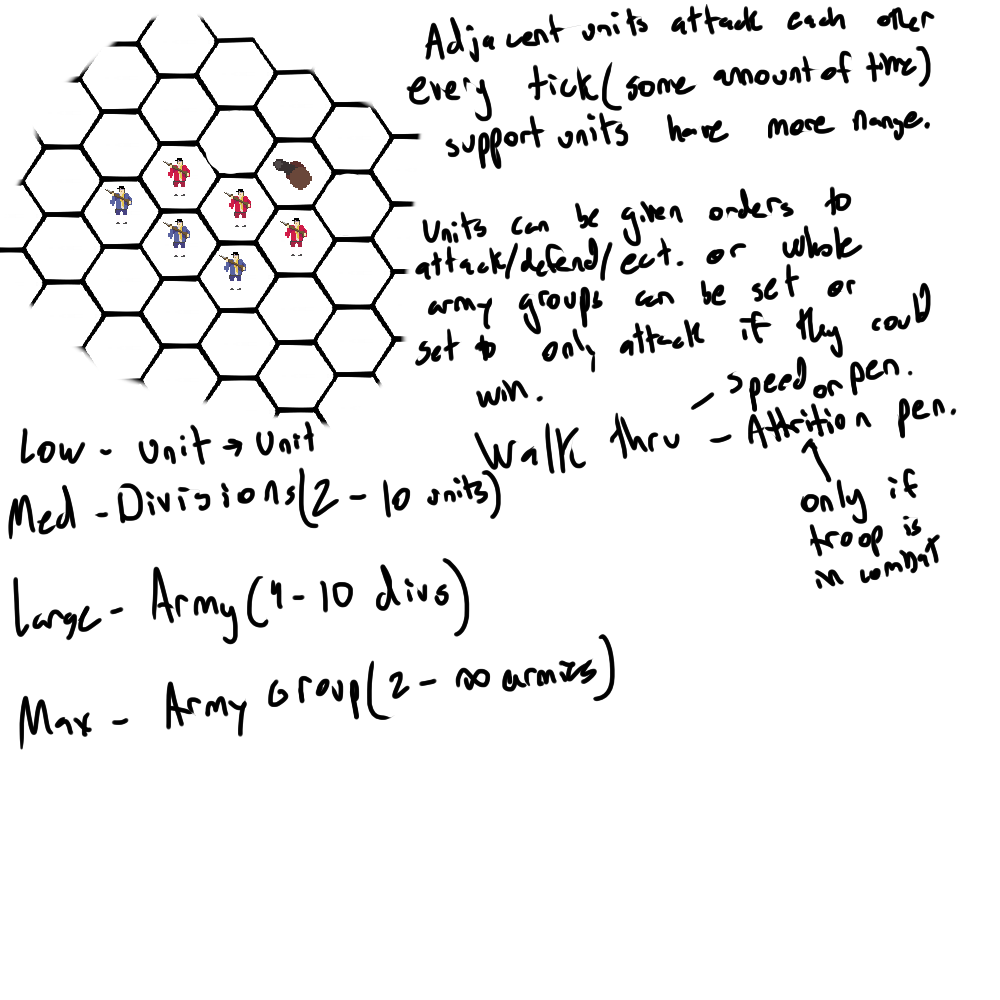 Adjacent units attack each other
every tick(some amount of time)
support units have more range.
Units can be given orders to
attack/defend/ect. or whole
army groups can be set or
set to only attack if they could
win.
Walk thru - speed or pen.
- Attrition pen.
only if
troop is
in combat
Low - unit → unit
Med - Divisions(2 - 10 units)
Large - Army(4 - 10 divs)
Max - Army Group(2 - ∞ armies)